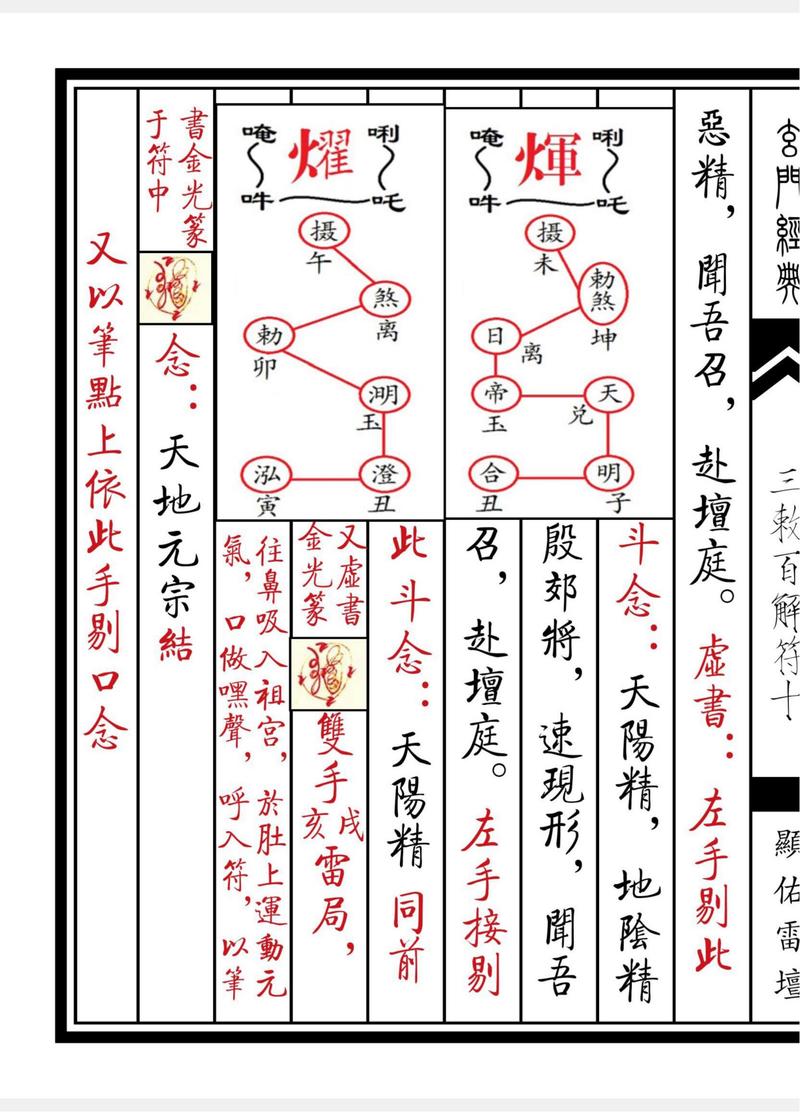 玄門經典
三敕百解符十
顯佑雷壇
惡精，聞吾召，赴壇庭。虛書：左手剔此
唵 煇 唎
吽 吒
摄
未
勅煞
坤
日
离
帝
玉
天
兑
合
丑
明
子
斗念：天陽精，地陰精
殷郊將，速現形，聞吾
召，赴壇庭。左手接剔
唵 燿 唎
吽 吒
摄
午
煞
离
勅
卯
玉
泓
寅
澄
丑
此斗念：天陽精同前
又虛書
金光篆
雙手戌亥雷局，
往鼻吸入祖宮，於肚上運動元
氣，口做嘿聲，呼入符，以筆
書金光篆
于符中
念：天地元宗結
又以筆點上依此手剔口念